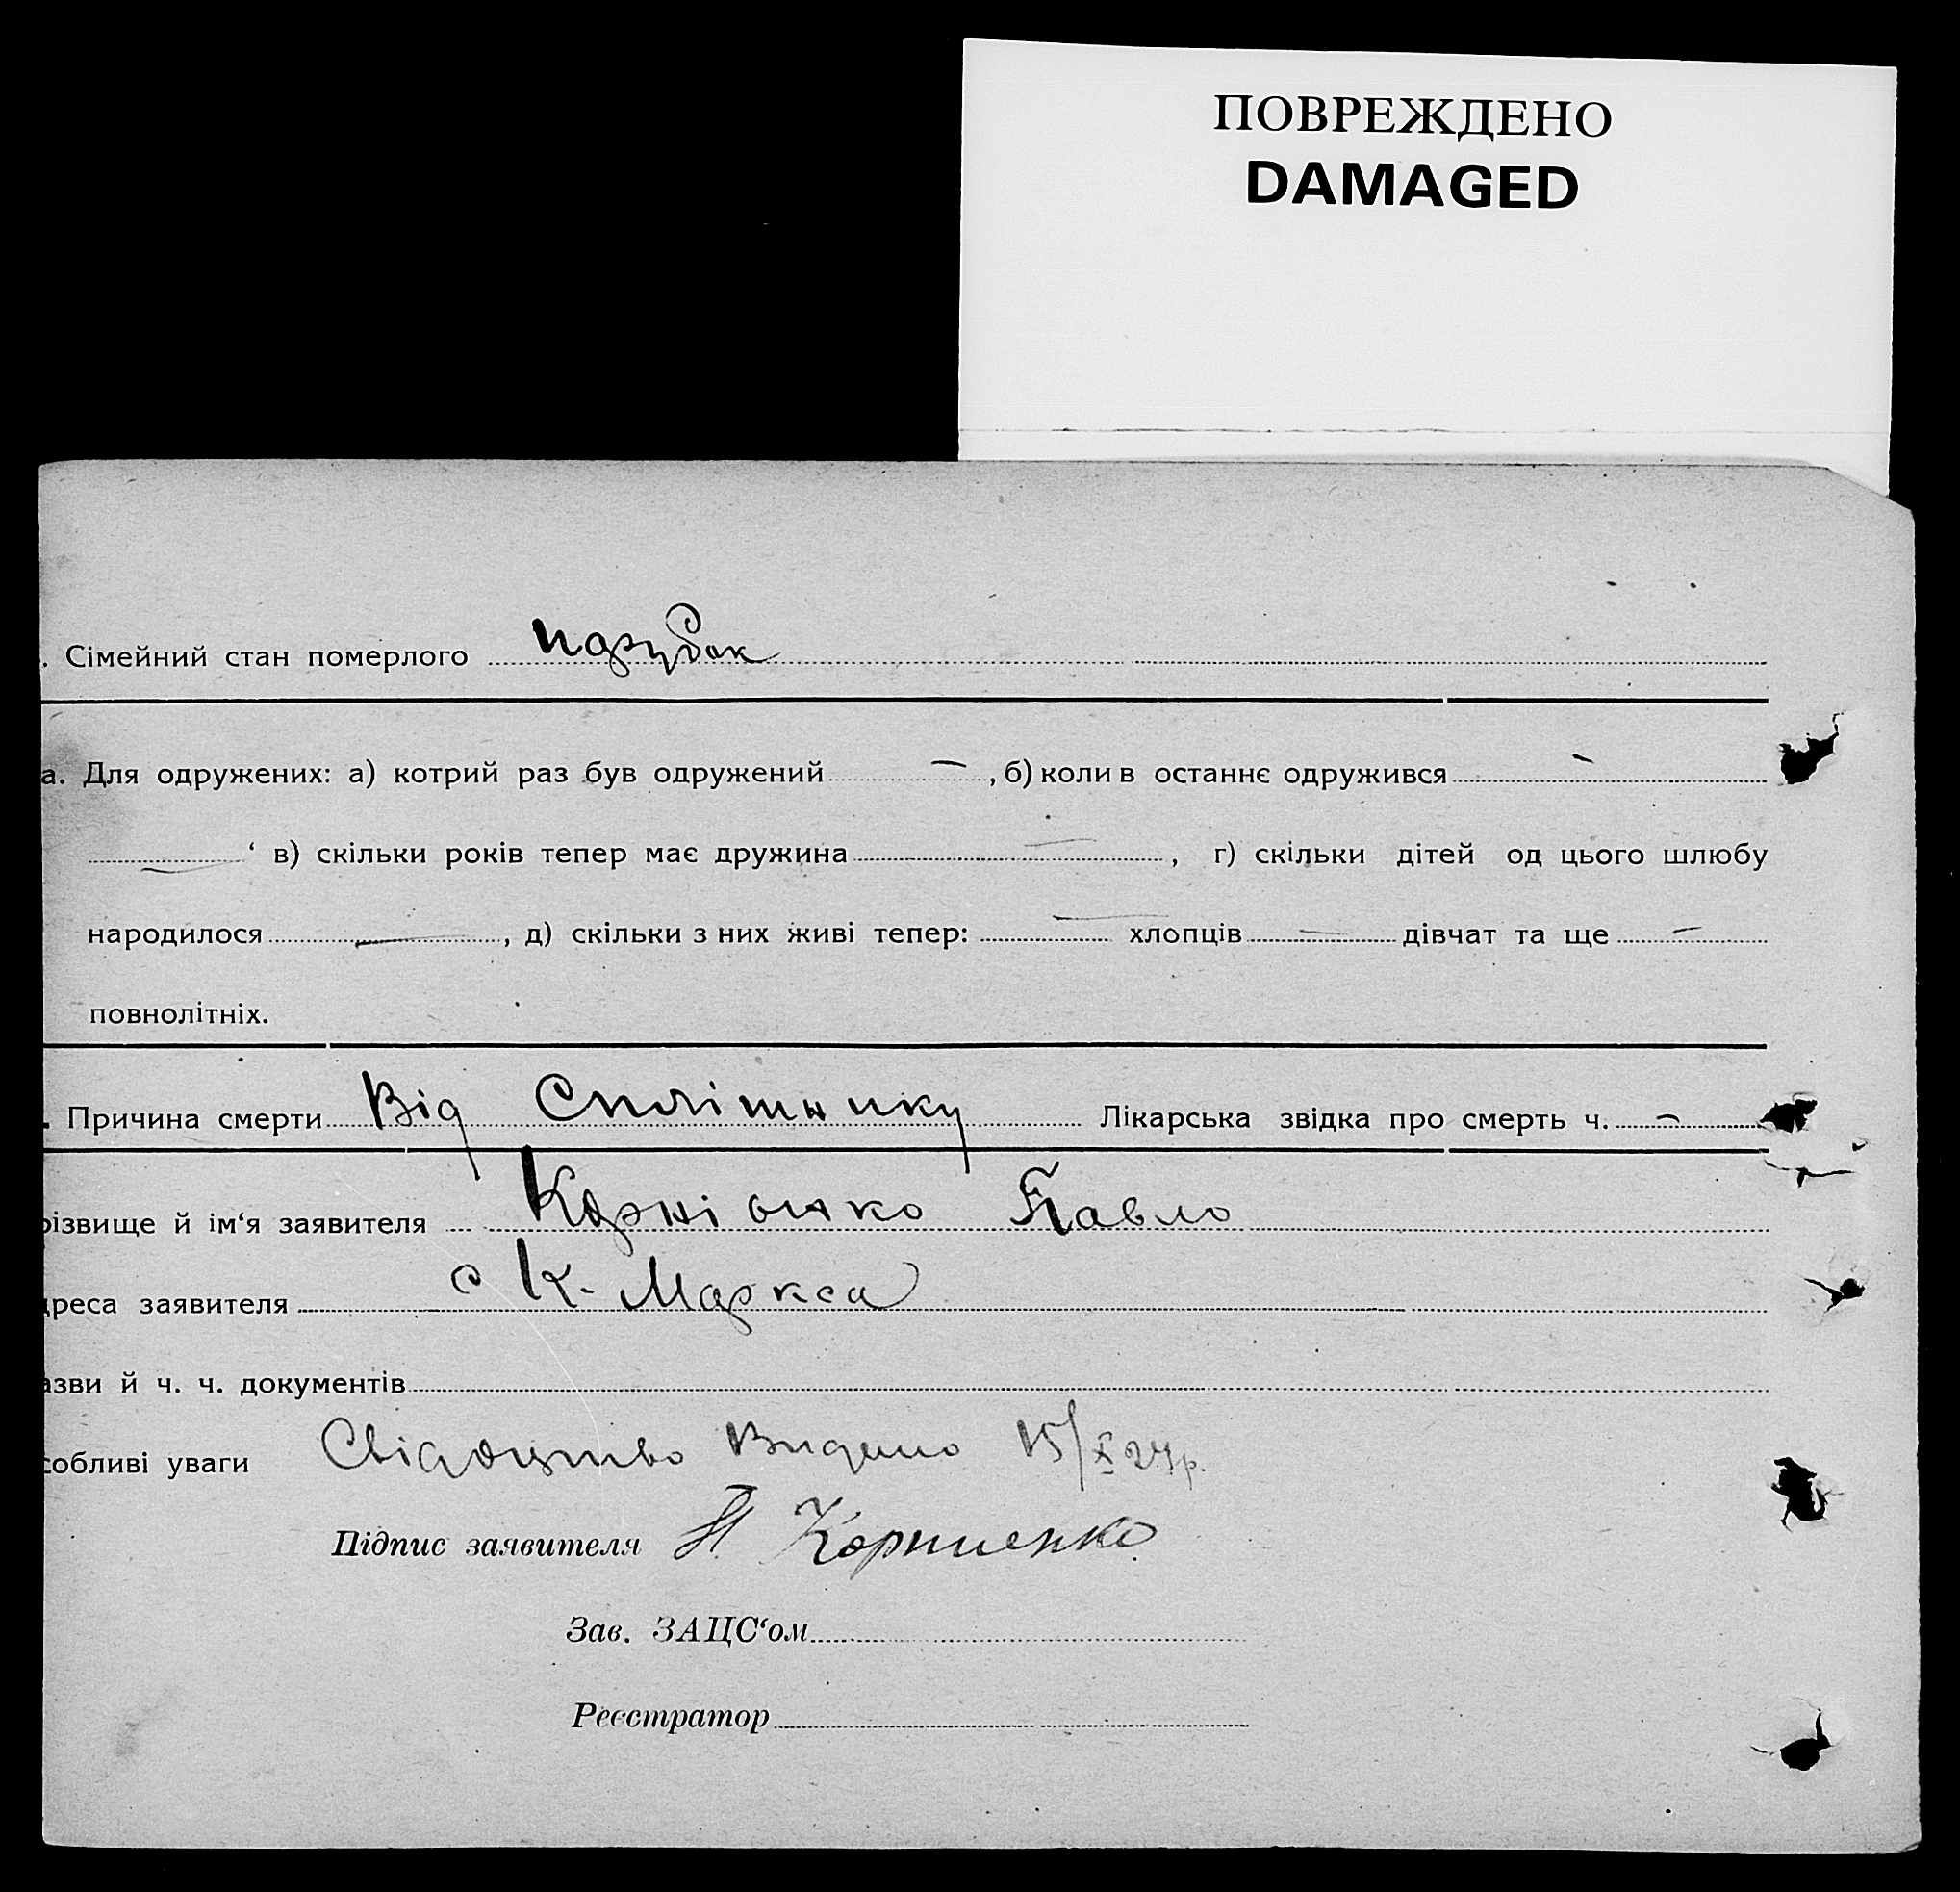 ПОВРЕЖДЕНО
DAMAGED
. Сімейний стан померлого парубок
а. Для одружених: а) котрий раз був одружений — , б) коли в останнє одружився —
— ‘ в) скільки років тепер має дружина — , г) скільки дітей од цього шлюбу
народилося — , д) скільки з них живі тепер: — хлопців — дівчат та ще —
повнолітніх.
. Причина смерти Від Лікарська звідка про смерть ч. —
різвище й ім‘я заявителя Корнієнко Павло
дреса заявителя с К. Маркса
азви й ч. ч. документів
собливі уваги Свідоцтво Видано 15/X
Підпис заявителя П. Корниенко
Зав. ЗАЦС‘ом
Реєстратор